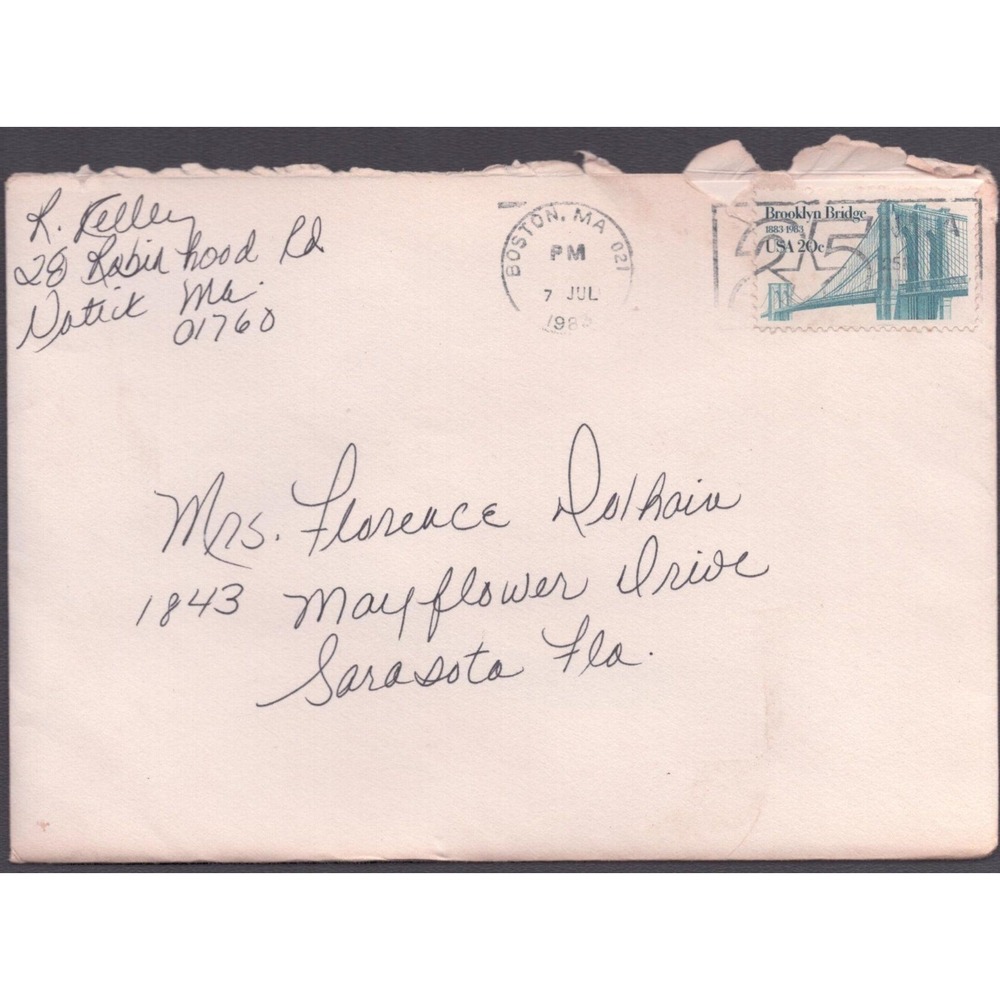 R. Kelley
28 Robin hood Rd
Natick Ma.
01760
BOSTON, MA 021
PM
7 JUL
1983
25
Brooklyn Bridge
1883-1983
USA 20c
Mrs. Florence
1843 Mayflower Drive
Sarasota Fla.